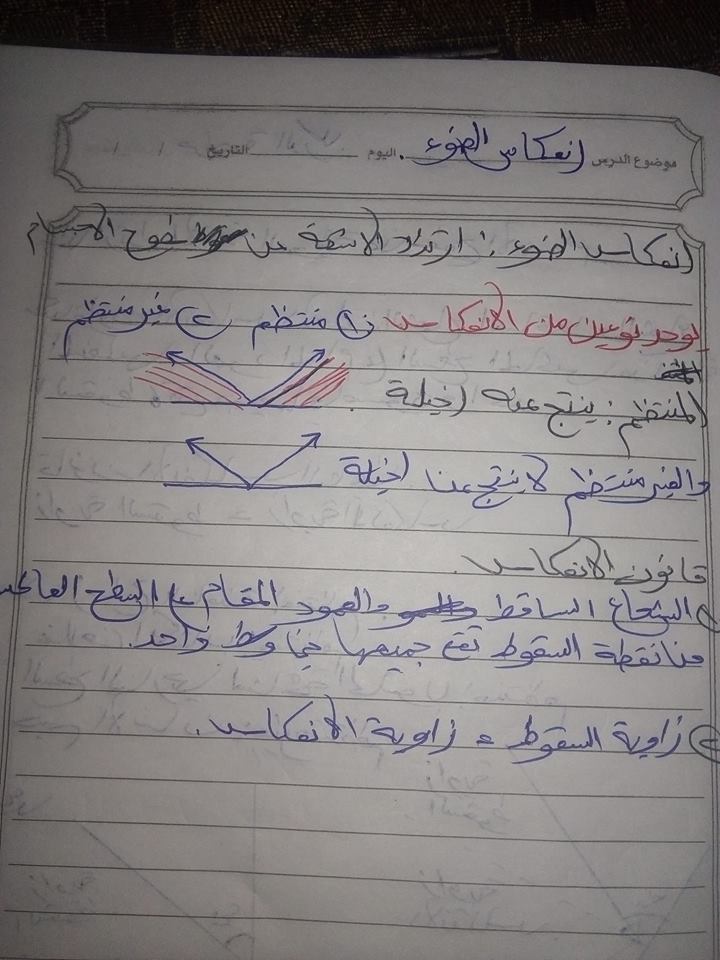 موضوع الدرس انعكاس الضوء. اليوم التاريخ
انعكاس الضوء : ارتداد الاشعة عن سطوح الاجسام
يوجد نوعين من الانعكاس ١) منتظم ٢) غير منتظم
المنتظم : ينتج عنه اخيلة .
والغير منتظم لا ينتج عنا اخيلة
قانون الانعكاس.
١) الشعاع الساقط والعمود المقام على السطح العاكس
من نقطة السقوط تقع جميعها في وسط واحد.
٢) زاوية السقوط = زاوية الانعكاس.